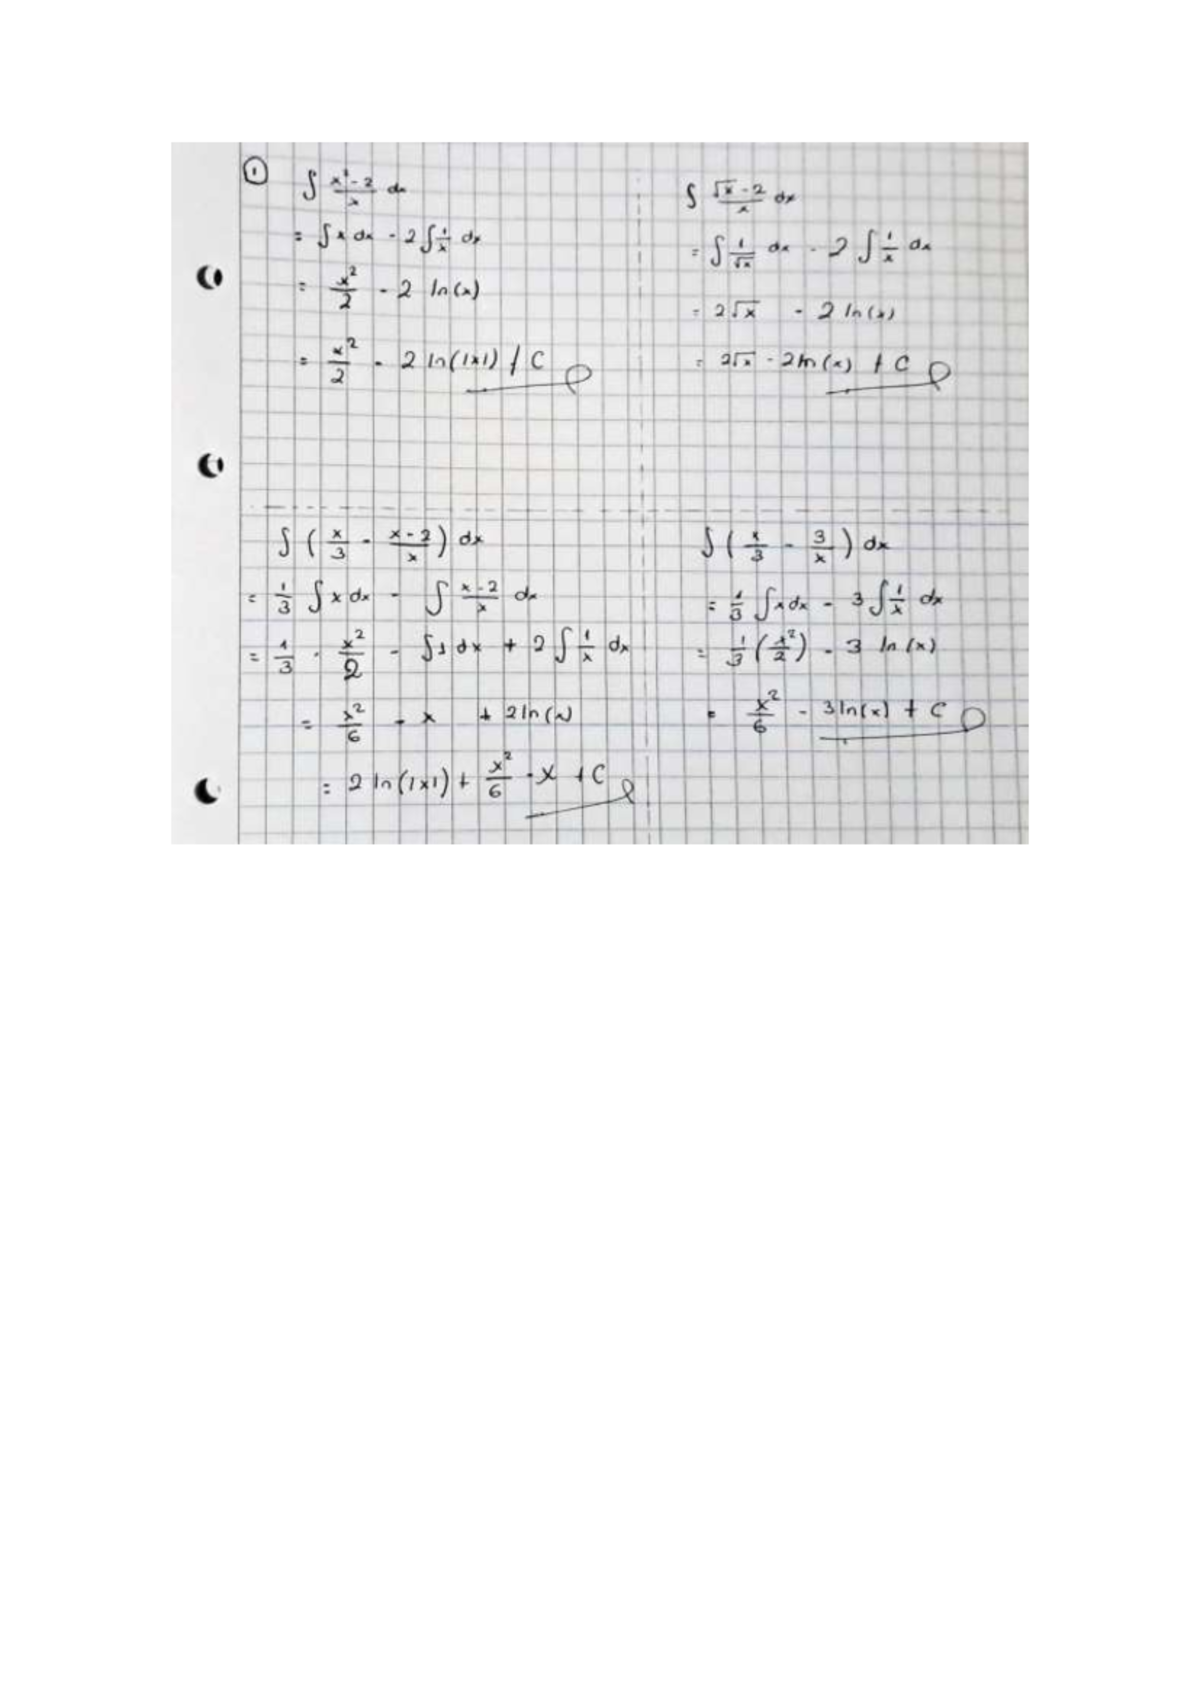 ①
∫ (x² - 2)/x dx
= ∫ x dx - 2 ∫ 1/x dx
= x²/2 - 2 ln(x)
= x²/2 - 2 ln(|x|) + C
∫ (√x - 2)/x dx
= ∫ 1/√x dx - 2 ∫ 1/x dx
= 2√x - 2 ln(x)
= 2√x - 2 ln(x) + C
∫ (x/3 - (x-2)/x) dx
= 1/3 ∫ x dx - ∫ (x-2)/x dx
= 1/3 · x²/2 - ∫ 1 dx + 2 ∫ 1/x dx
= x²/6 - x + 2 ln(x)
= 2 ln(|x|) + x²/6 - x + C
∫ (x/3 - 3/x) dx
= 1/3 ∫ x dx - 3 ∫ 1/x dx
= 1/3 (x²/2) - 3 ln(x)
= x²/6 - 3 ln(x) + C